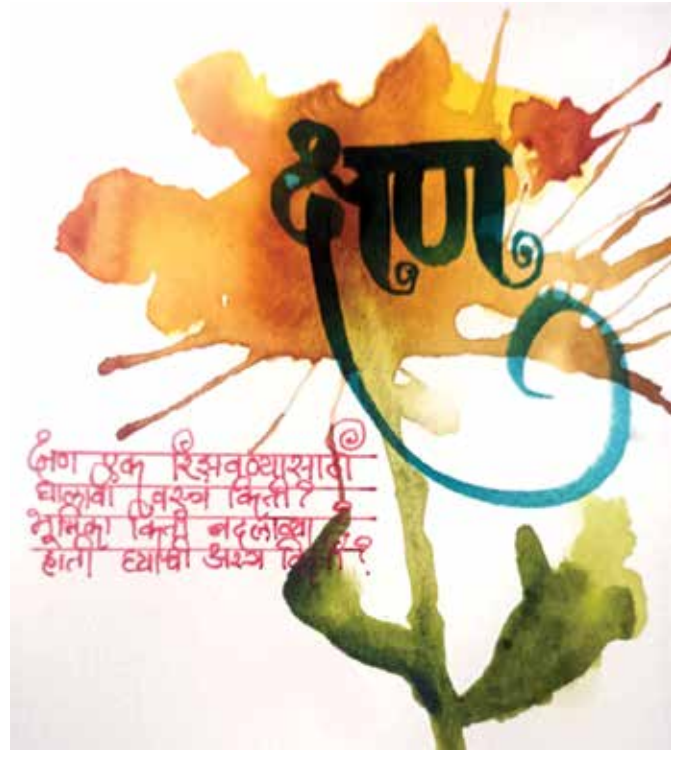 क्षण
क्षण एक रिझवण्यासाठी
घालावी वस्त्रं किती?
भूमिका किती बदलाव्या
हाती घ्यावी अस्त्रं किती?